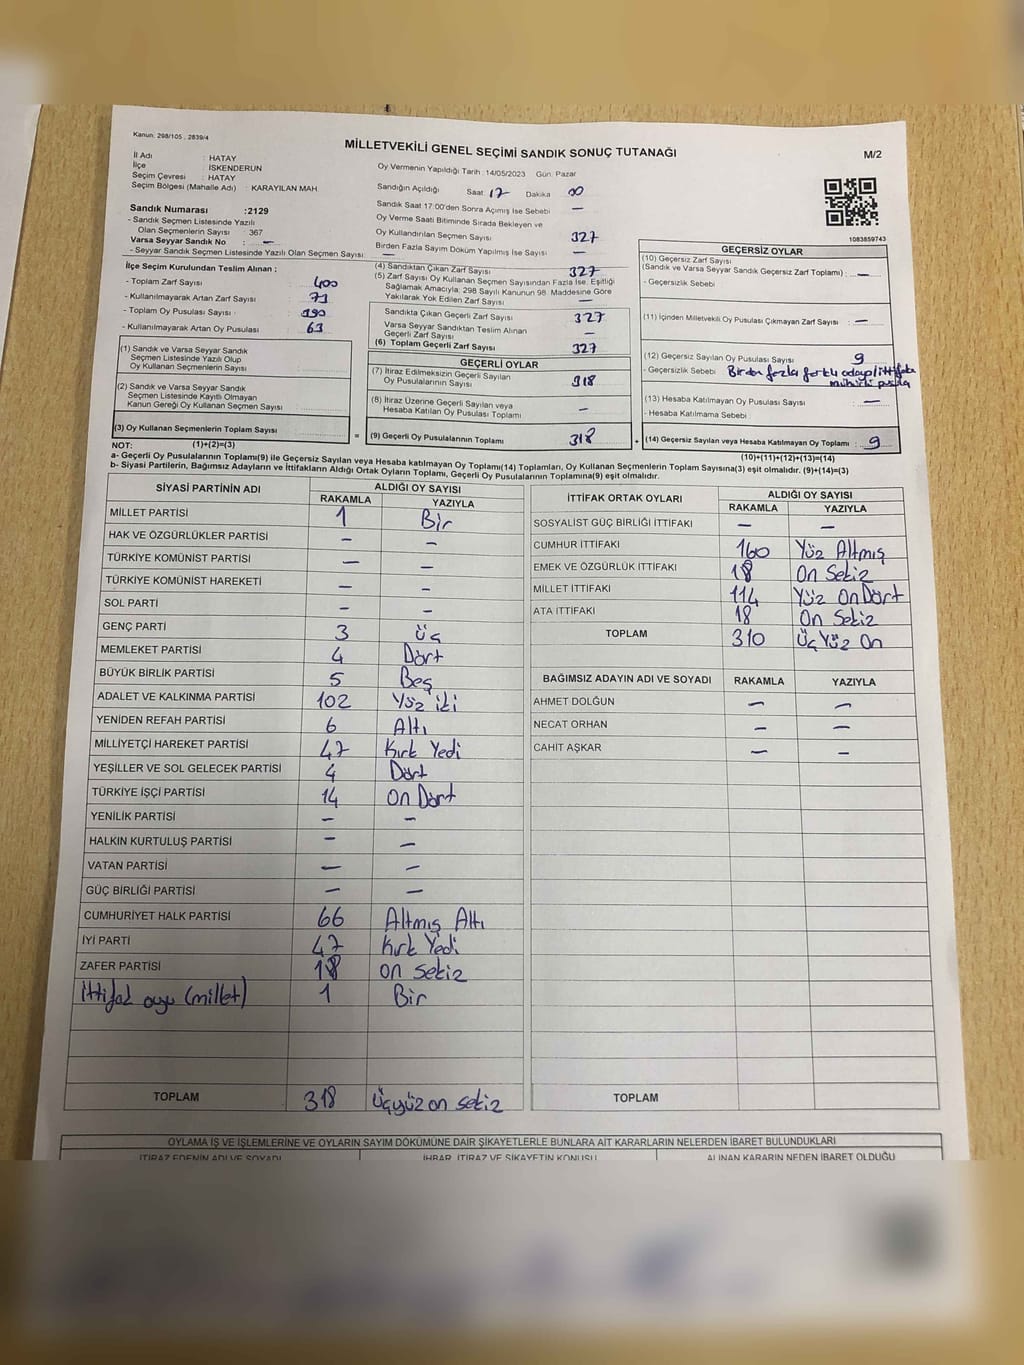 Kanun: 298/105 , 2839/4
MİLLETVEKİLİ GENEL SEÇİMİ SANDIK SONUÇ TUTANAĞI
M/2
İl Adı : HATAY
İlçe : İSKENDERUN
Seçim Çevresi : HATAY
Seçim Bölgesi (Mahalle Adı) : KARAYILAN MAH.
Sandık Numarası :2129
- Sandık Seçmen Listesinde Yazılı
Olan Seçmenlerin Sayısı : 367
Varsa Seyyar Sandık No : —
- Seyyar Sandık Seçmen Listesinde Yazılı Olan Seçmen Sayısı : —
Oy Vermenin Yapıldığı Tarih : 14/05/2023 Gün: Pazar
Sandığın Açıldığı Saat: 17 Dakika 00
Sandık Saat 17:00'den Sonra Açımış İse Sebebi —
Oy Verme Saati Bitiminde Sırada Bekleyen ve
Oy Kullandırılan Seçmen Sayısı 327
Birden Fazla Sayım Döküm Yapılmış İse Sayısı —
1083859743
İlçe Seçim Kurulundan Teslim Alınan :
- Toplam Zarf Sayısı : 400
- Kullanılmayarak Artan Zarf Sayısı : 73
- Toplam Oy Pusulası Sayısı : 390
- Kullanılmayarak Artan Oy Pusulası : 63
(1) Sandık ve Varsa Seyyar Sandık
Seçmen Listesinde Yazılı Olup
Oy Kullanan Seçmenlerin Sayısı :
(2) Sandık ve Varsa Seyyar Sandık
Seçmen Listesinde Kayıtlı Olmayan
Kanun Gereği Oy Kullanan Seçmen Sayısı :
(3) Oy Kullanan Seçmenlerin Toplam Sayısı :
NOT: (1)+(2)=(3)
(4) Sandıktan Çıkan Zarf Sayısı 327
(5) Zarf Sayısı Oy Kullanan Seçmen Sayısından Fazla İse, Eşitliği
Sağlamak Amacıyla; 298 Sayılı Kanunun 98. Maddesine Göre
Yakılarak Yok Edilen Zarf Sayısı —
Sandıkta Çıkan Geçerli Zarf Sayısı 327
Varsa Seyyar Sandıktan Teslim Alınan
Geçerli Zarf Sayısı —
(6) Toplam Geçerli Zarf Sayısı 327
GEÇERLİ OYLAR
(7) İtiraz Edilmeksizin Geçerli Sayılan
Oy Pusulalarının Sayısı 318
(8) İtiraz Üzerine Geçerli Sayılan veya
Hesaba Katılan Oy Pusulası Toplamı —
= (9) Geçerli Oy Pusulalarının Toplamı 318 +
GEÇERSİZ OYLAR
(10) Geçersiz Zarf Sayısı
(Sandık ve Varsa Seyyar Sandık Geçersiz Zarf Toplamı) : —
- Geçersizlik Sebebi :
(11) İçinden Milletvekili Oy Pusulası Çıkmayan Zarf Sayısı : —
(12) Geçersiz Sayılan Oy Pusulası Sayısı 9
- Geçersizlik Sebebi : Birden fazla farklı adayı/ittifakı
mühürlü pusula
(13) Hesaba Katılmayan Oy Pusulası Sayısı : —
- Hesaba Katılmama Sebebi :
(14) Geçersiz Sayılan veya Hesaba Katılmayan Oy Toplamı : 9
(10)+(11)+(12)+(13)=(14)
a- Geçerli Oy Pusulalarının Toplamı(9) ile Geçersiz Sayılan veya Hesaba katılmayan Oy Toplamı(14) Toplamları, Oy Kullanan Seçmenlerin Toplam Sayısına(3) eşit olmalıdır. (9)+(14)=(3)
b- Siyasi Partilerin, Bağımsız Adayların ve İttifakların Aldığı Ortak Oyların Toplamı, Geçerli Oy Pusulalarının Toplamına(9) eşit olmalıdır.
SİYASİ PARTİNİN ADI ALDIĞI OY SAYISI
RAKAMLA YAZIYLA
MİLLET PARTİSİ 1 Bir
HAK VE ÖZGÜRLÜKLER PARTİSİ — —
TÜRKİYE KOMÜNİST PARTİSİ — —
TÜRKİYE KOMÜNİST HAREKETİ — —
SOL PARTİ — —
GENÇ PARTİ 3 Üç
MEMLEKET PARTİSİ 4 Dört
BÜYÜK BİRLİK PARTİSİ 5 Beş
ADALET VE KALKINMA PARTİSİ 102 Yüz iki
YENİDEN REFAH PARTİSİ 6 Altı
MİLLİYETÇİ HAREKET PARTİSİ 47 Kırk Yedi
YEŞİLLER VE SOL GELECEK PARTİSİ 4 Dört
TÜRKİYE İŞÇİ PARTİSİ 14 On Dört
YENİLİK PARTİSİ — —
HALKIN KURTULUŞ PARTİSİ — —
VATAN PARTİSİ — —
GÜÇ BİRLİĞİ PARTİSİ — —
CUMHURİYET HALK PARTİSİ 66 Altmış Altı
İYİ PARTİ 47 Kırk Yedi
ZAFER PARTİSİ 18 On Sekiz
İttifak oyu (millet) 1 Bir
TOPLAM 318 Üçyüz on sekiz
İTTİFAK ORTAK OYLARI ALDIĞI OY SAYISI
RAKAMLA YAZIYLA
SOSYALİST GÜÇ BİRLİĞİ İTTİFAKI — —
CUMHUR İTTİFAKI 160 Yüz Altmış
EMEK VE ÖZGÜRLÜK İTTİFAKI 18 On Sekiz
MİLLET İTTİFAKI 114 Yüz OnDört
ATA İTTİFAKI 18 On Sekiz
TOPLAM 310 Üç Yüz On
BAĞIMSIZ ADAYIN ADI VE SOYADI RAKAMLA YAZIYLA
AHMET DOLĞUN — —
NECAT ORHAN — —
CAHİT AŞKAR — —
TOPLAM
OYLAMA İŞ VE İŞLEMLERİNE VE OYLARIN SAYIM DÖKÜMÜNE DAİR ŞİKAYETLERLE BUNLARA AİT KARARLARIN NELERDEN İBARET BULUNDUKLARI
İTİRAZ EDENİN ADI VE SOYADI İHBAR, İTİRAZ VE ŞİKAYETİN KONUSU ALINAN KARARIN NEDEN İBARET OLDUĞU